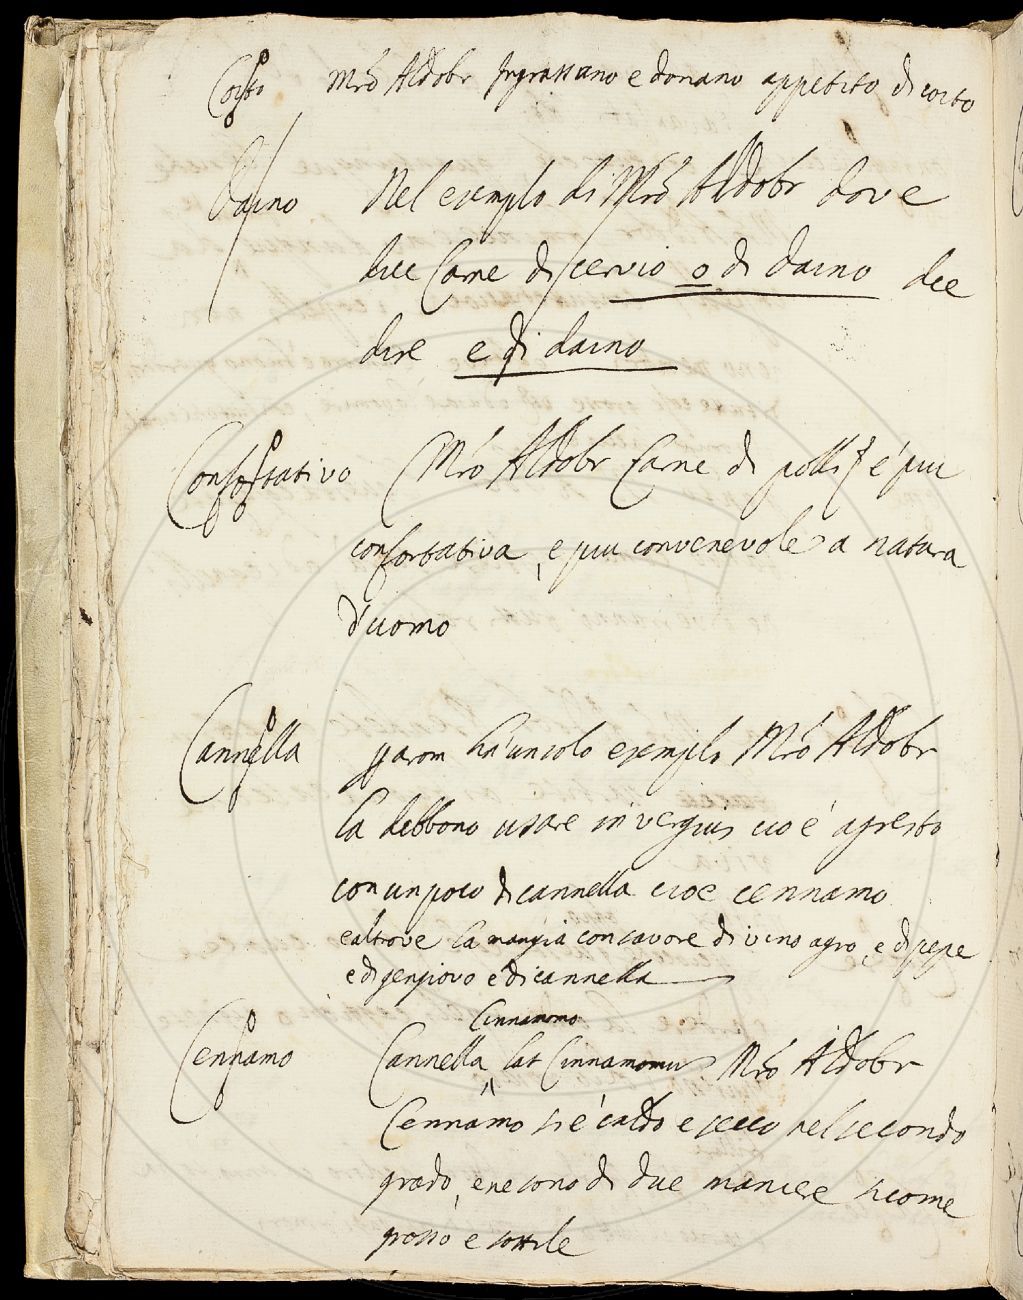 Coito Mrõ Aldobr Ingrassano e donano appetito di coito
Daino Nel exemplo di Mrõ Aldobr dove
dice Carne di cervio o di daino dee
dire e di daino
Confortativo Mrõ Aldobr Carne di polli è più
confortativa, e più convenevole a natura
d'uomo
Cannella ha un solo exemplo Mrõ Aldobr
la debbono usare in vergius cioè agresto
con un poco di cannella cioè cennamo
ealtrove la mangia con savore di vino agro, e di pepe
e di gengiovo e di cannella
Cinnamomo
Cennamo Cannella, lat Cinnamomũ Mrõ Aldobr
Cennamo si è caldo e secco nel secondo
grado, e ne sono di due maniere sicome
grosso e sottile